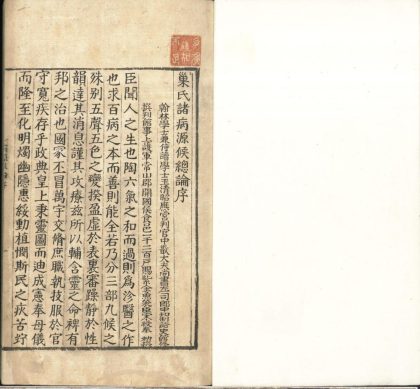 巢氏諸病源候總論序
翰林學士兼侍讀學士玉清昭應宮判官中散大夫尚書左司郎中知制誥史館修
撰判館事上護軍常山郡開國侯食邑一千二百戶賜紫金魚袋臣宋綬奉
臣聞人之生也陶六氣之和而過則為沴醫之作
也求百病之本而善則能全若乃分三部九候之
殊別五聲五色之變揆盈虛於表裏審躁靜於性
韻達其消息謹其攻療兹所以輔含靈之命裨有
邦之治也國家丕冒萬宇交脩庶職執技服於官
守寬疾存乎政典皇上秉靈圖而迪成憲奉母儀
而隆至化明燭幽隱惠綏動植憫斯民之疾苦竚